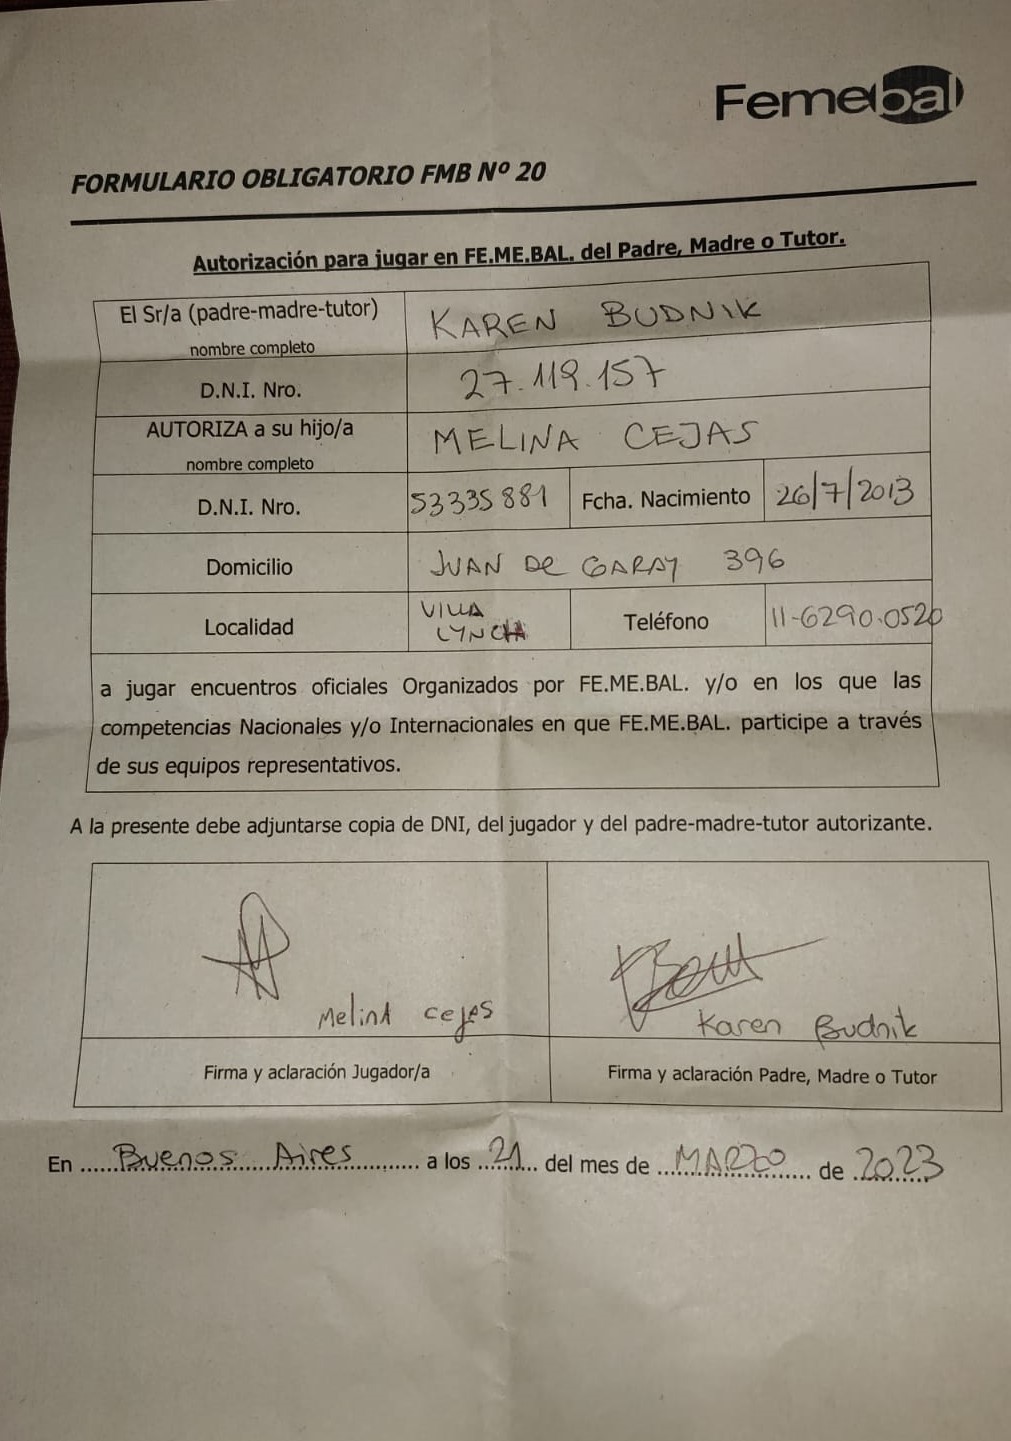 Femebal
FORMULARIO OBLIGATORIO FMB Nº 20
Autorización para jugar en FE.ME.BAL. del Padre, Madre o Tutor.
El Sr/a (padre-madre-tutor)
nombre completo
KAREN BUDNIK
D.N.I. Nro.
27.119.157
AUTORIZA a su hijo/a
nombre completo
MELINA CEJAS
D.N.I. Nro.
53335881
Fcha. Nacimiento
26/7/2013
Domicilio
JUAN De GARAY 396
Localidad
VILLA
LYNCH
Teléfono
11-6290.0520
a jugar encuentros oficiales Organizados por FE.ME.BAL. y/o en los que las
competencias Nacionales y/o Internacionales en que FE.ME.BAL. participe a través
de sus equipos representativos.
A la presente debe adjuntarse copia de DNI, del jugador y del padre-madre-tutor autorizante.
Melina Cejas
Karen Budnik
Firma y aclaración Jugador/a
Firma y aclaración Padre, Madre o Tutor
En Buenos Aires a los 21 del mes de MARZO de 2023